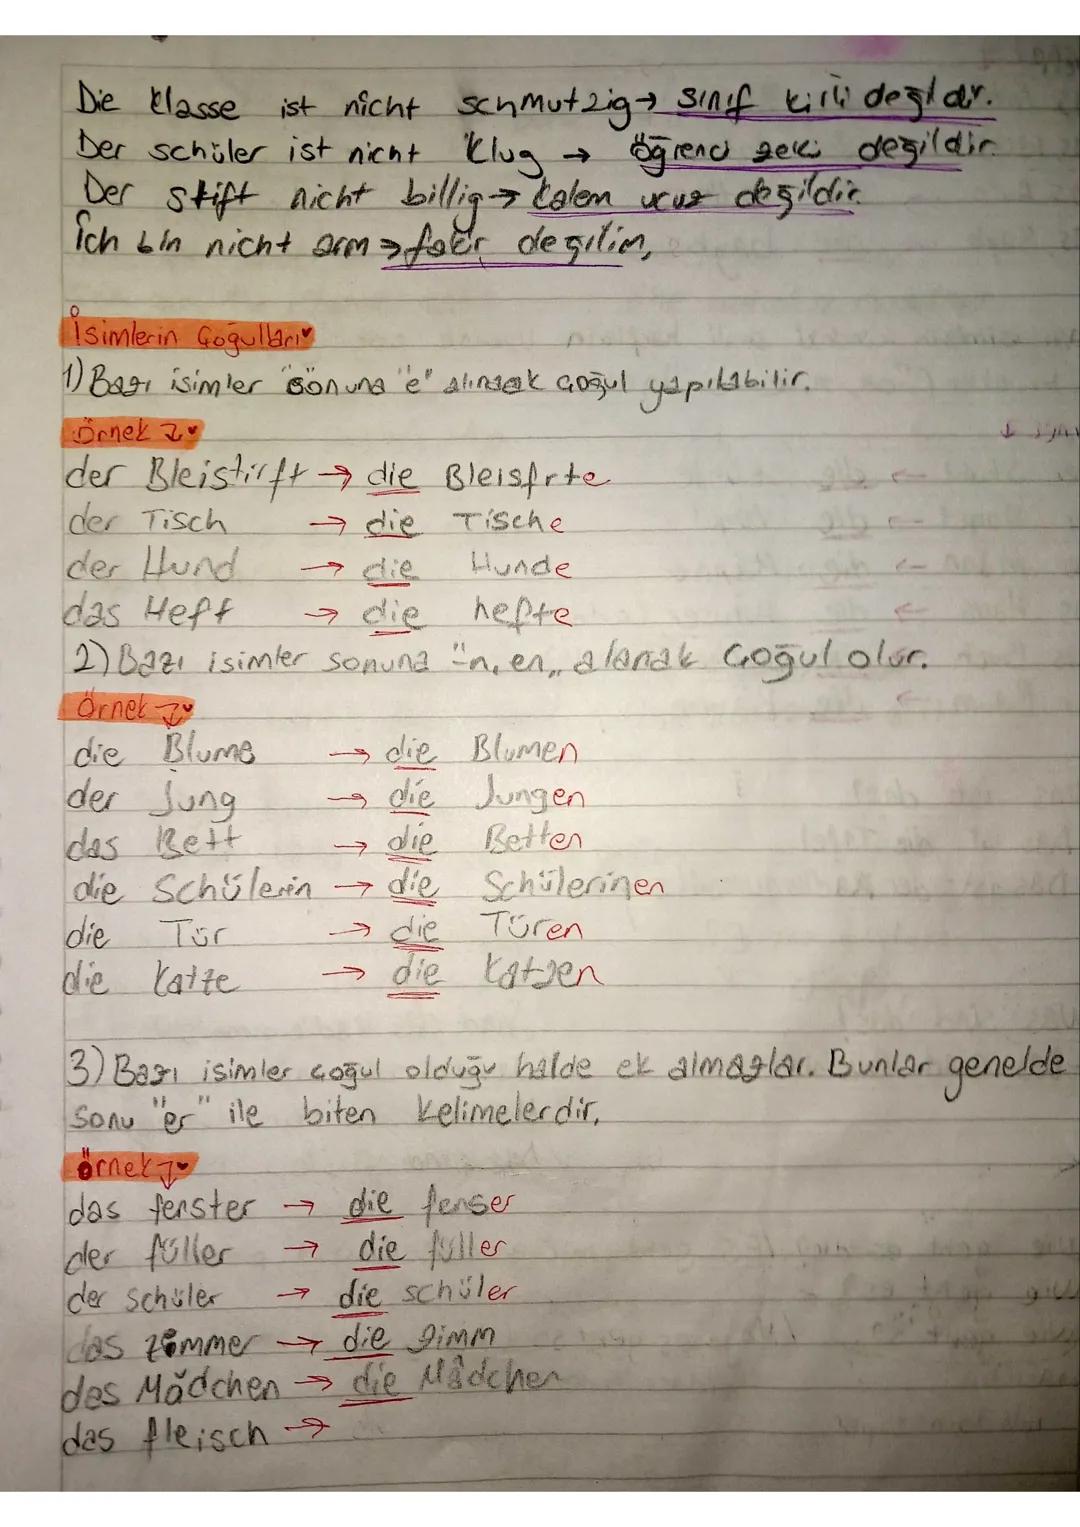 Die Klasse ist nicht schmutzig → sınıf kirli değildir.
Der schüler ist nicht klug → öğrenci zeki değildir.
Der stift nicht billig → kalem ucuz değildir.
ich bin nicht arm → fakir değilim,
İsimlerin Çoğulları
1) Bazı isimler sonuna "e" alarak çoğul yapılabilir.
Örnek
der Bleistirft → die Bleisfrte
der Tisch → die Tische
der Hund → die Hunde
das Heft → die hefte
2) Bazı isimler sonuna "-n, en,, alarak çoğul olur.
Örnek
die Blume → die Blumen
der Jung → die Jungen
das Bett → die Betten
die Schülerin → die Schülerinen
die Tür → die Türen
die Katze → die Katzen
3) Bazı isimler çoğul olduğu halde ek almazlar. Bunlar genelde
sonu "er" ile biten kelimelerdir,
örnek
das fenster → die fenser
der füller → die füller
der schüler → die schüler
das zimmer → die zimm
des Mädchen → die Mädchen
das fleisch →